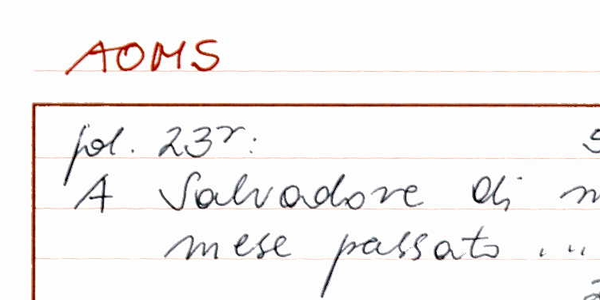 AOMS
fol. 23r:
A Salvadore di
mese passato ...